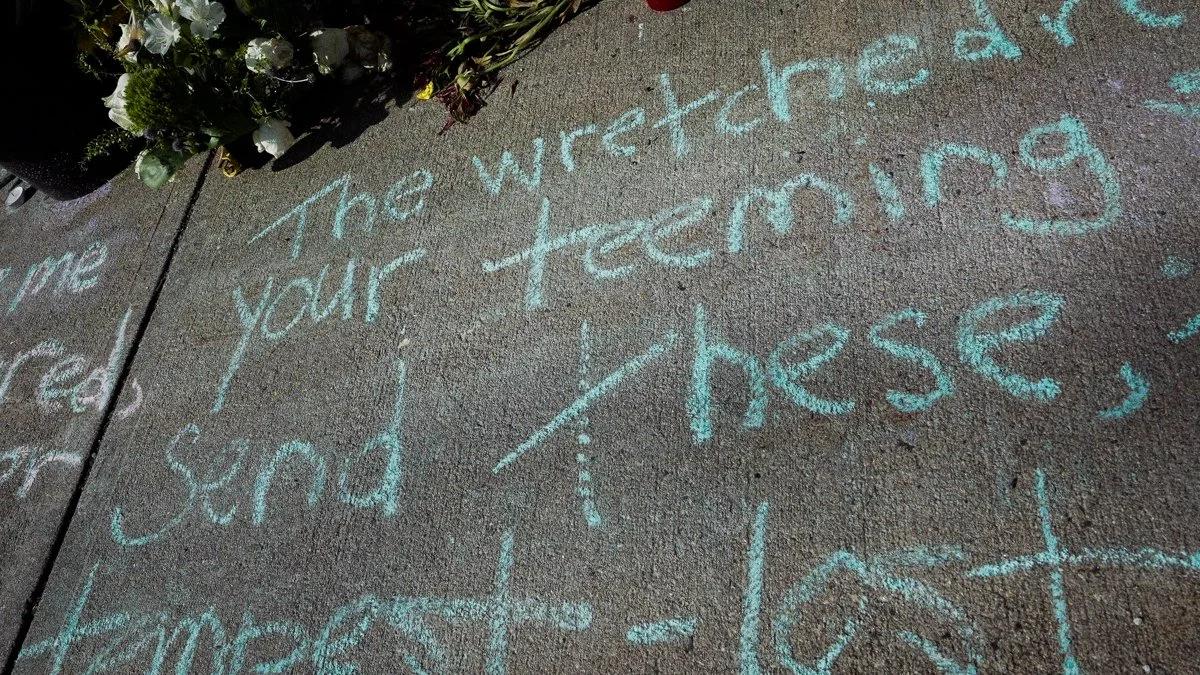 me
red,
or
The wretched re
your teeming
Send these,
tempest-lost